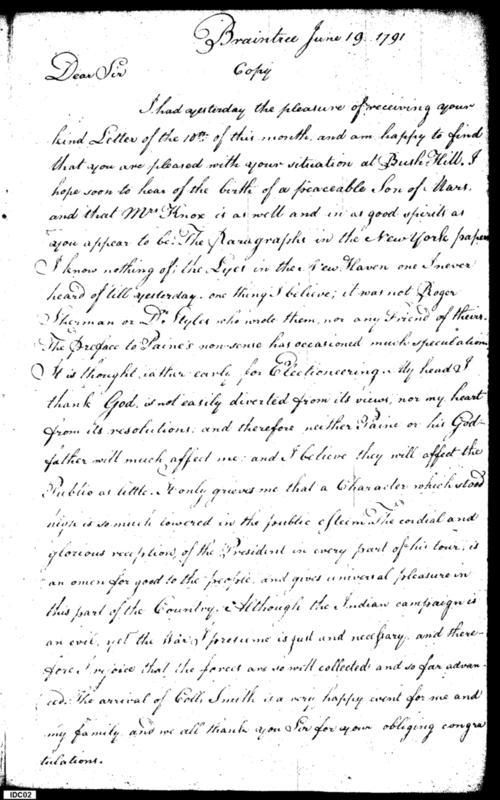 Braintree June 19. 1791
Dear Sir
Copy
I had yesterday the pleasure of receiving your
kind Letter of the 10th. of this month, and am happy to find
that you are pleased with your situation at Bush-Hill. I
hope soon to hear of the birth of a peaceable Son of Mars,
and that Mrs Knox is as well and in as good spirits as
you appear to be. The Paragraphs in the New York papers
I know nothing of; the Lyes in the New Haven one I never
heard of till yesterday. one thing I believe; it was not Roger
Sherman or Dr. Styles who wrote them, nor any Friend of theirs.
The Preface to Paine's non-sense has occasioned much speculation.
It is thought rather early for Electioneering. My head I
thank God, is not easily diverted from its views, nor my heart
from its resolutions; and therefore neither Paine or his God-
father will much affect me: and I believe they will affect the
Public as little. It only grieves me that a Character which stood
high is so much lowered in the public esteem. The cordial and
glorious reception, of the President in every part of his tour, is
an omen for good to the people, and gives universal pleasure in
this part of the Country. Although the Indian campaign is
an evil, yet the War I presume is just and necessary, and there-
fore I rejoice that the forces are so well collected and so far advan
ced. The arrival of Coll: Smith is a very happy event for me and
my family, and we all thank you Sir for your obliging congra
tulations.
IDC02